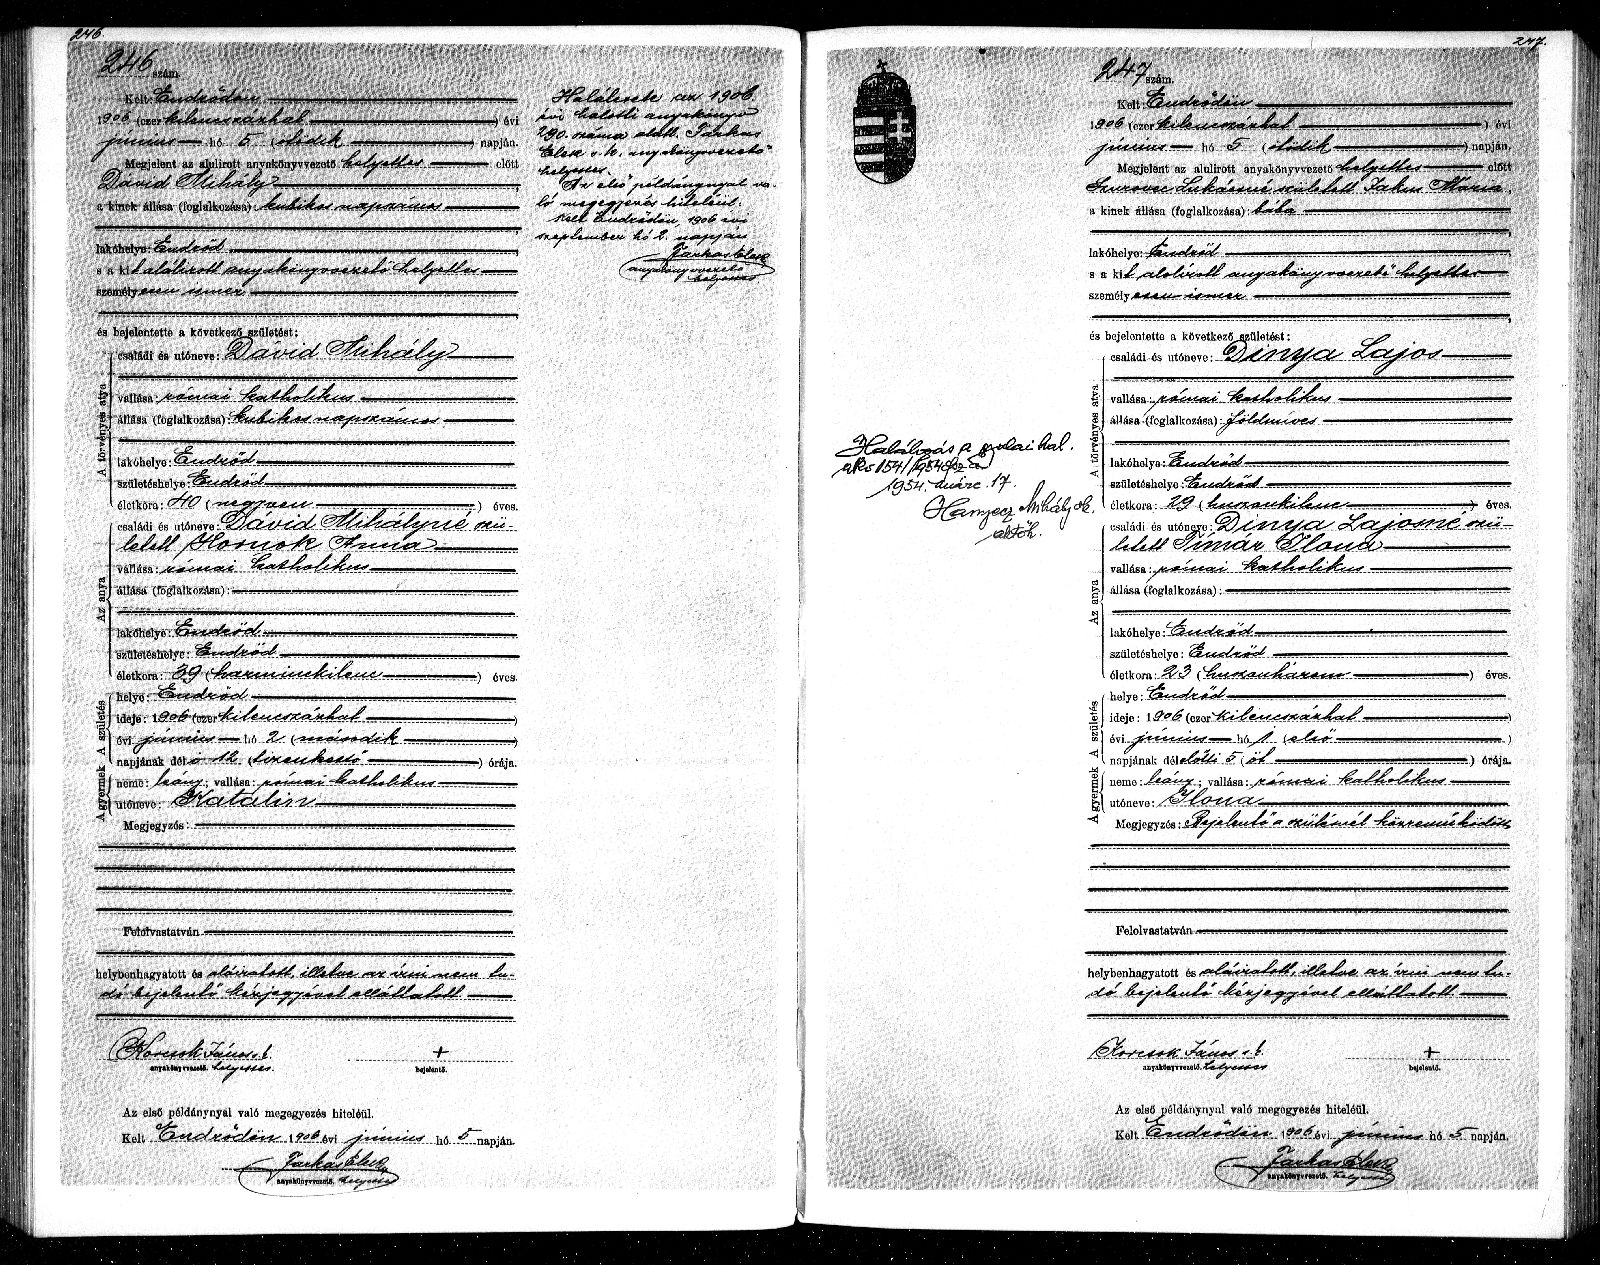 246.
246 szám.
Kelt: Endrődön
1906 (ezer kilencszázhat) évi
június hó 5. (ötödik) napján.
Megjelent az alulirott anyakönyvvezető helyettes előtt
Dávid Mihály,
a kinek állása (foglalkozása): kubikos napszámos
lakóhelye: Endrőd
s a kit alólirott anyakönyvvezető helyettes
személyesen ismer
és bejelentette a következő születést:
A törvényes atya
családi és utóneve: Dávid Mihály
vallása: római katholikus
állása (foglalkozása): kubikos napszámos
lakóhelye: Endrőd
születéshelye: Endrőd
életkora: 40 (negyven) éves.
Az anya
családi és utóneve: Dávid Mihályné szü-
letett Hornok Anna
vallása: római katholikus
állása (foglalkozása):
lakóhelye: Endrőd
születéshelye: Endrőd
életkora: 39 (harminckilenc) éves.
A születés
helye: Endrőd
ideje: 1906 (ezer kilencszázhat)
évi június hó 2 (második)
napjának déli 12 (tizenkettő) órája.
A gyermek
neme: leány; vallása: római katholikus
utóneve: Katalin
Megjegyzés:
Felolvastatván
helybenhagyatott és aláiratott, illetve az irni nem tu-
dó bejelentő kézjegyével elláttatott
Korcsok János s. k. +
anyakönyvvezető. helyettes. bejelentő.
Az első példánynyal való megegyezés hiteléül.
Kelt Endrődön 1906 évi június hó 5 napján.
Farkas Elek
anyakönyvvezető. helyettes
Halálesete az 1906.
évi halotti anyakönyv
290. száma alatt. Farkas
Elek s. k. anyakönyvvezető
helyettes.
Az első példánynyal va-
ló megegyezés hiteléül.
Kelt Endrődön 1906 évi
szeptember hó 2. napján
Farkas Elek
anyakönyvvezető
helyettes
247.
247 szám.
Kelt: Endrődön
1906 (ezer kilencszázhat) évi
június hó 5 (ötödik) napján,
Megjelent az alulirott anyakönyvvezető helyettes előtt
Lukácsné született Mária,
a kinek állása (foglalkozása): bába
lakóhelye: Endrőd
s a kit alólirott anyakönyvvezető helyettes
személyesen ismer
és bejelentette a következő születést:
A törvényes atya
családi és utóneve: Dinya Lajos
vallása: római katholikus
állása (foglalkozása): földmíves
lakóhelye: Endrőd
születéshelye: Endrőd
életkora: 29 (huszonkilenc) éves.
Az anya
családi és utóneve: Dinya Lajosné szü-
letett Tímár Ilona
vallása: római katholikus
állása (foglalkozása):
lakóhelye: Endrőd
születéshelye: Endrőd
életkora: 23 (huszonhárom) éves.
A születés
helye: Endrőd
ideje: 1906 (ezer kilencszázhat)
évi június hó 1. (első)
napjának délelőtti 5 (öt) órája.
A gyermek
neme: leány; vallása: római katholikus
utóneve: Ilona
Megjegyzés: Bejelentő a szülésnél közreműködött
Felolvastatván
helybenhagyatott és aláiratott, illetve az irni nem tu-
dó bejelentő kézjegyével elláttatott.
Korcsok János s. k. +
anyakönyvvezető. helyettes bejelentő.
Az első példánynyal való megegyezés hiteléül.
Kelt Endrődön 1906 évi június hó 5 napján.
Farkas Elek
anyakönyvvezető. helyettes
a gyulai hal.
akv 154/1954
1954. márc. 17.
Hanyecz Mihály